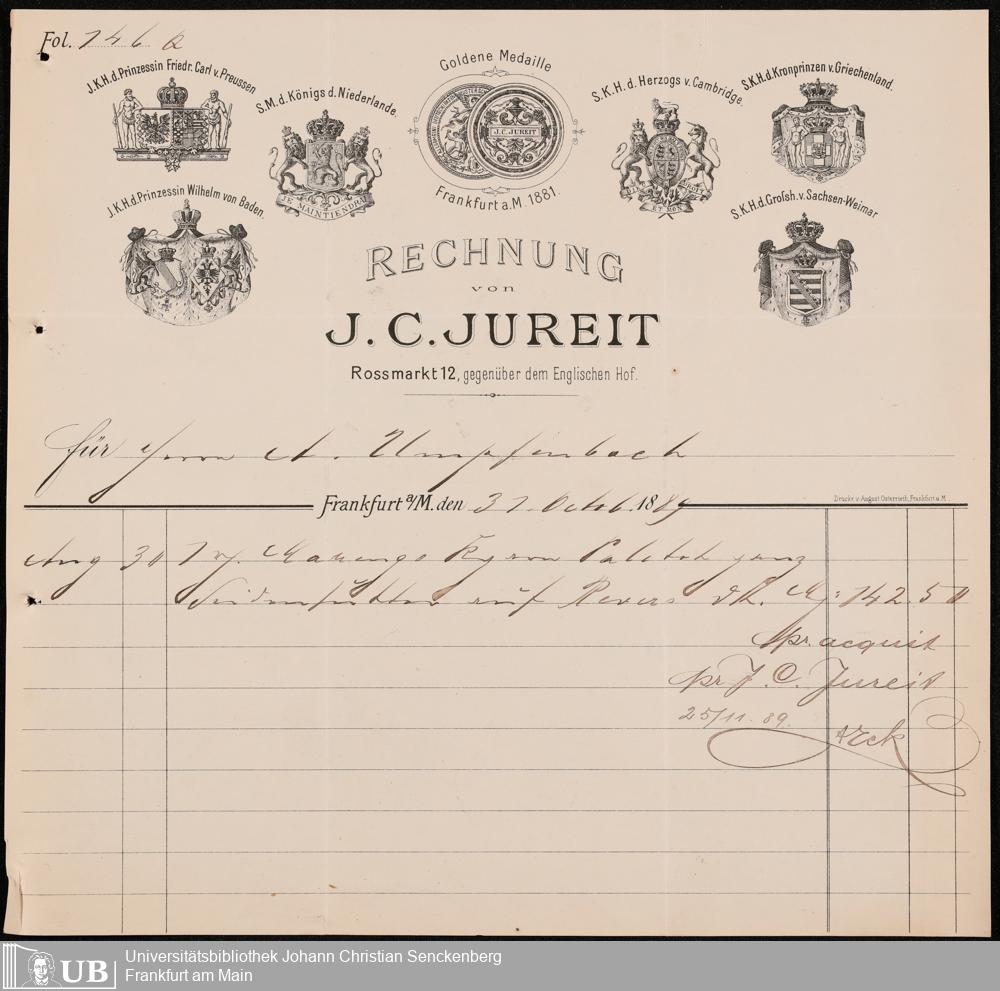 Fol. 746
J.K.H.d.Prinzessin Friedr. Carl v. Preussen
S.M.d. Königs d. Niederlande.
Goldene Medaille
J.C. JUREIT
Frankfurt a. M. 1881.
S.K.H.d. Herzogs v. Cambridge.
S.K.H.d. Kronprinzen v. Griechenland.
JE MAINTIENDRAI
J.K.H.d.Prinzessin Wilhelm von Baden.
S.K.H.d. Grosh. v. Sachsen-Weimar
RECHNUNG
von
J. C. JUREIT
Rossmarkt 12, gegenüber dem Englischen Hof.
für Herrn A. Umpfenbach
Frankfurt a/M. den 31. Octob. 1889
Druck v. August Osterrieth, Frankfurt a. M.
Aug 30 1 Marengo Paletot ganz
Seidenfutter auf Revers M: 142. 50
pr. acquit
pr J. C. Jureit
25/11. 89.